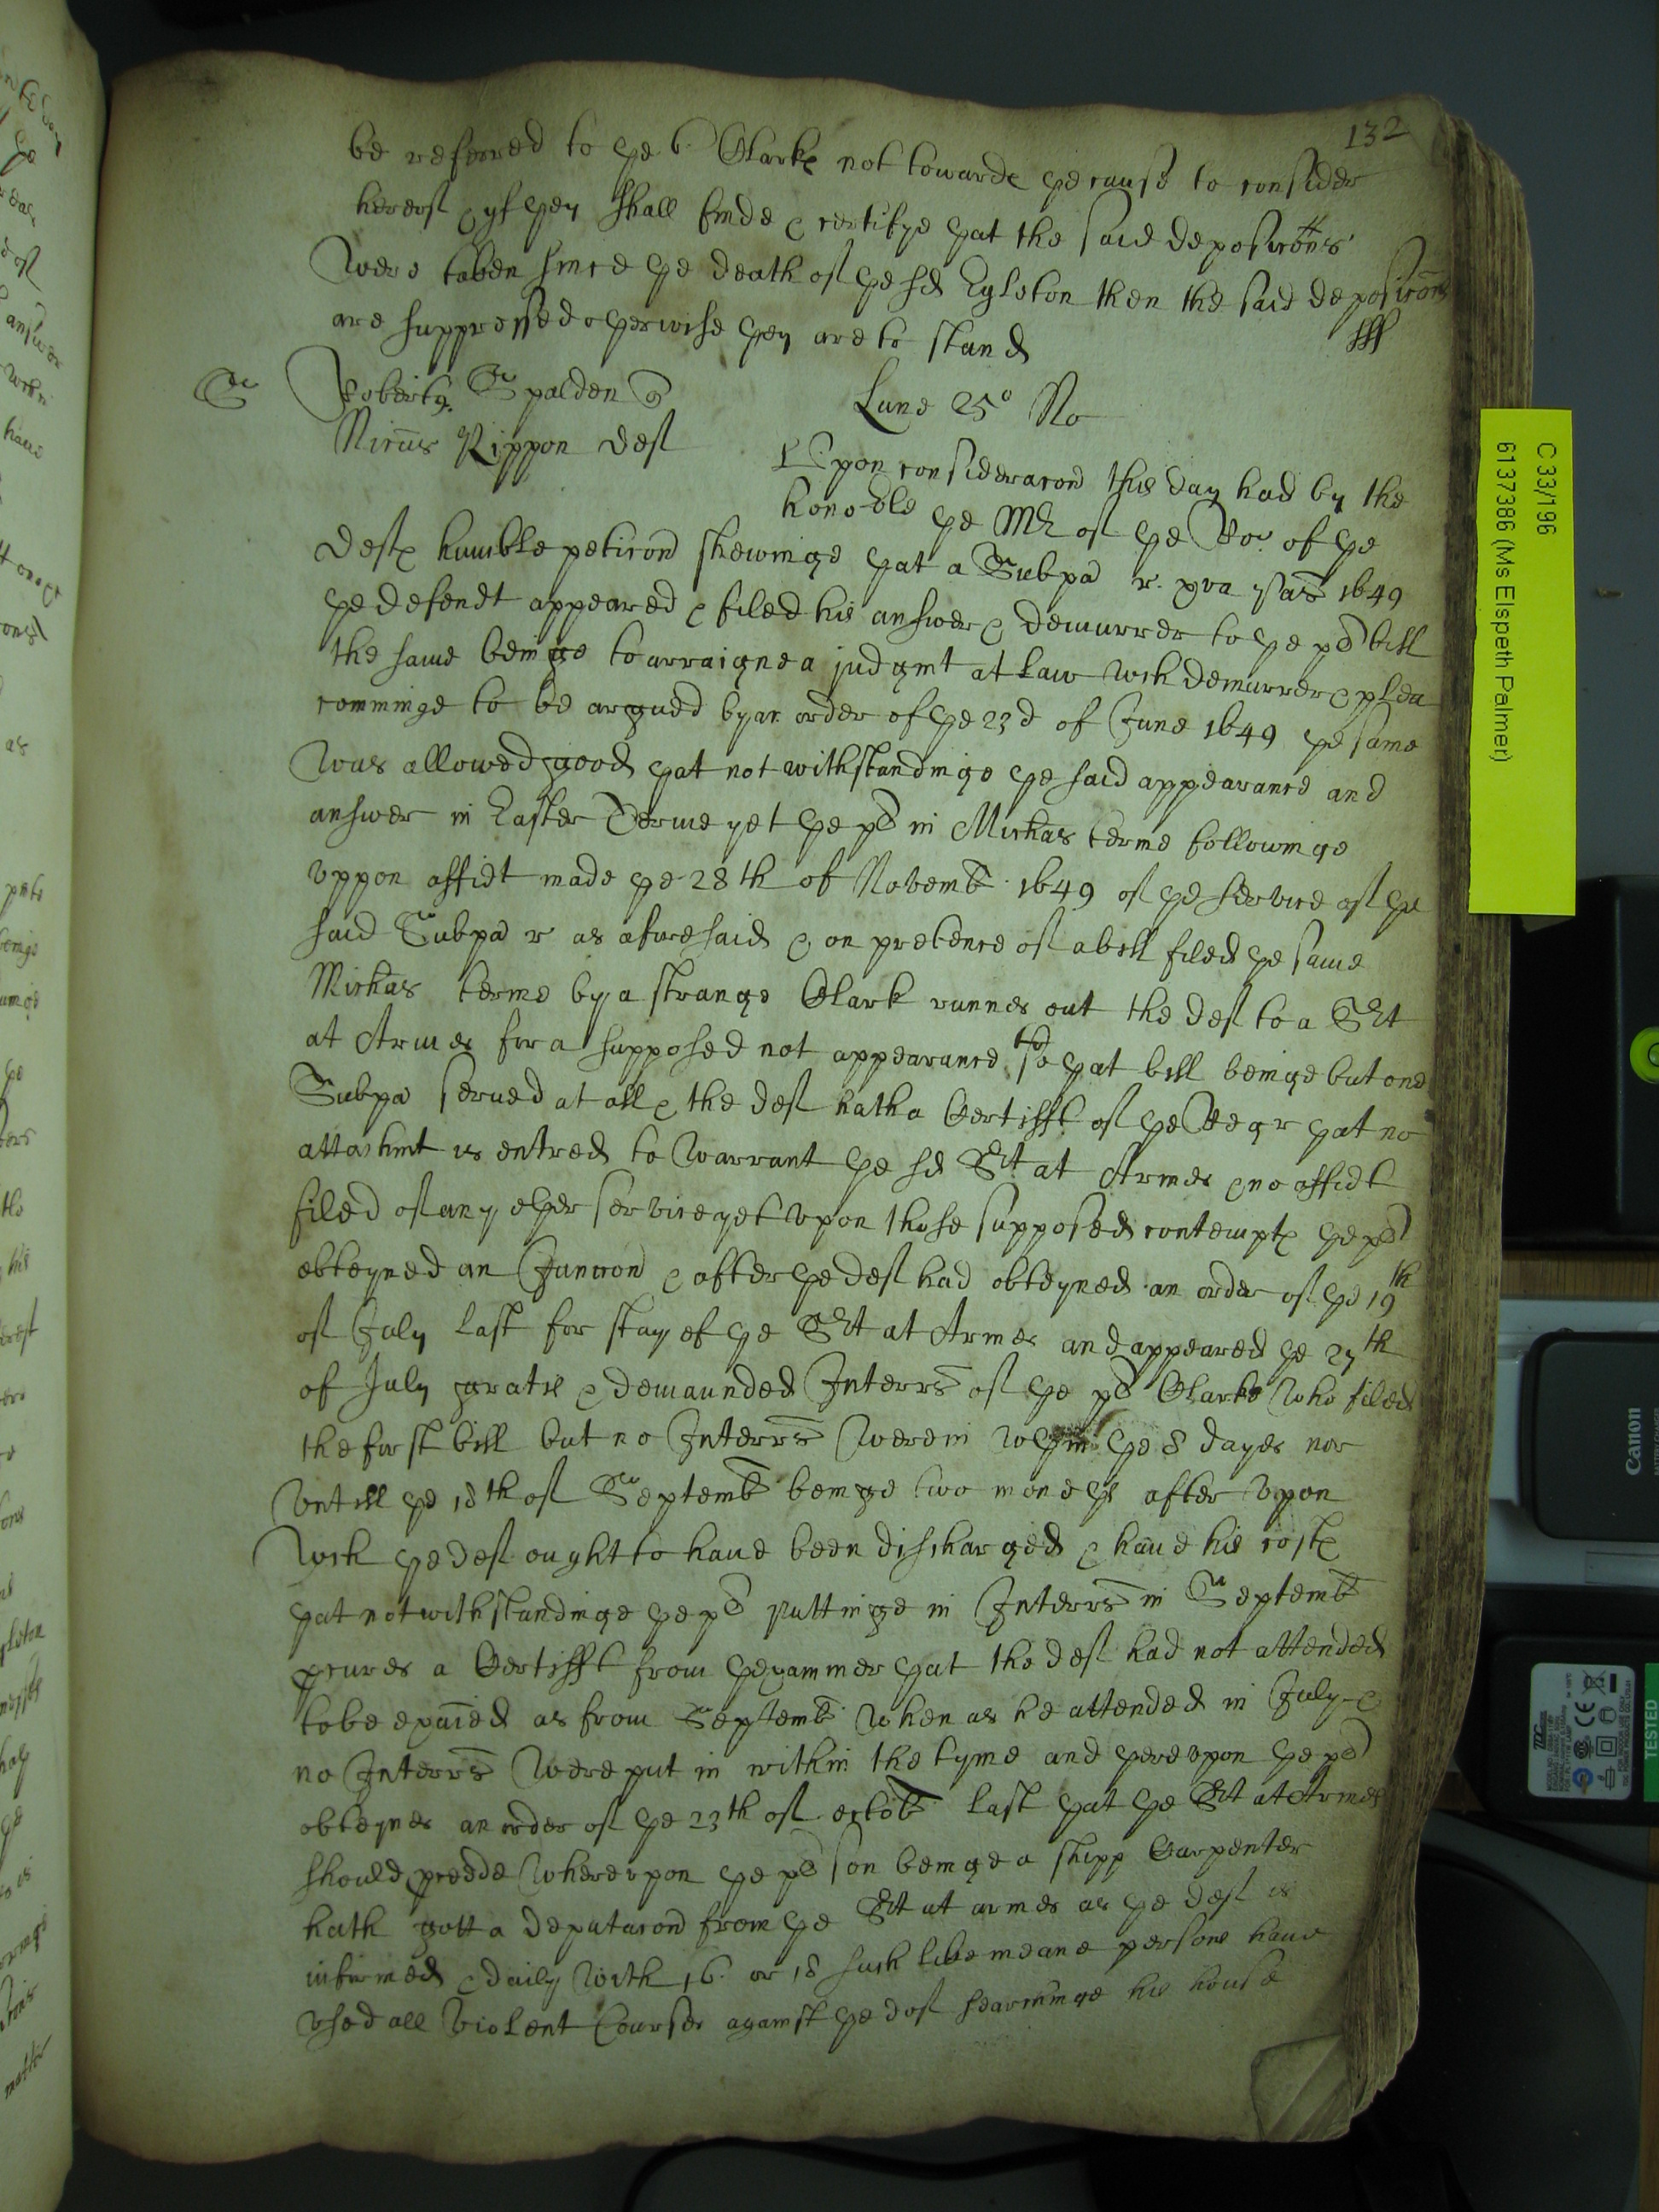 132
be referred to ye 6 Clarkes not towards ye cause to consider
hereof & yf yey shall finde & certifye yat the said deposicons
were taken since ye death of ye sd Egleton then the said deposicons
are suppressed oyerwise yey are to stand
Lune 25° No
Robertus Spalden
Nicus Rippon deft
Upon consideracon this day had by the
honoble ye Mr of ye Ro: of ye
defts humble peticon shewinge yat a Subpa r. 1649
ye defendt appeared & filed his answer & demurrer to ye plt bill
the same beinge to arraigne a judgmt at law wch demurrer & plea
comminge to be argued by an order of ye 23d of June 1649 ye same
was allowed good yat notwithstandinge ye said appearance and
answer in Easter Terme yet ye plt in Michas terme followinge
uppon affidt made ye 28th of Novemb 1649 of ye service of ye
said Subpa r as aforesaid & on pretence of a bill filed ye same
Michas terme by a strange Clark runnes out the deft to a Sjt
at Armes for a supposed not appearance to yat bill beinge but one
Subpa served at all & the deft hath a Certifft of ye Regr yat no
attachmt is entred to warrant ye sd Sjt at Armes & no affidt
filed of any oyer service yet upon those supposed contempts ye plt
obteyned an Junccon & after ye deft had obteyned an order of ye 19th
of July last for stay of ye Sjt at Armes and appeared ye 27th
of July gratis & demaunded Interrs of ye plt Clarke who filed
the first bill but no Interrs were in wthin ye 8 dayes nor
untill ye 18th of Septemb beinge two moneths after upon
wch ye deft ought to have been discharged & have his costs
yat notwithstandinge ye plt puttinge in Interrs in Septemb
pcures a Certifft from yexaminer yat the deft had not attended
to be examied as from Septemb when as he attended in July &
no Interrs were put in within the tyme and yereupon ye plt
obteynes an order of ye 23th of octob last yat ye Sjt at Armes
should proceede whereupon ye plt son beinge a shipp Carpenter
hath gott a deputacon from ye Sjt at armes as ye deft is
informed & daily with 16 or 18 such like meane persons have
used all violent Courses against ye deft searchinge his house
C 33/196
6137386 (Ms Elspeth Palmer)
Canon
TESTED